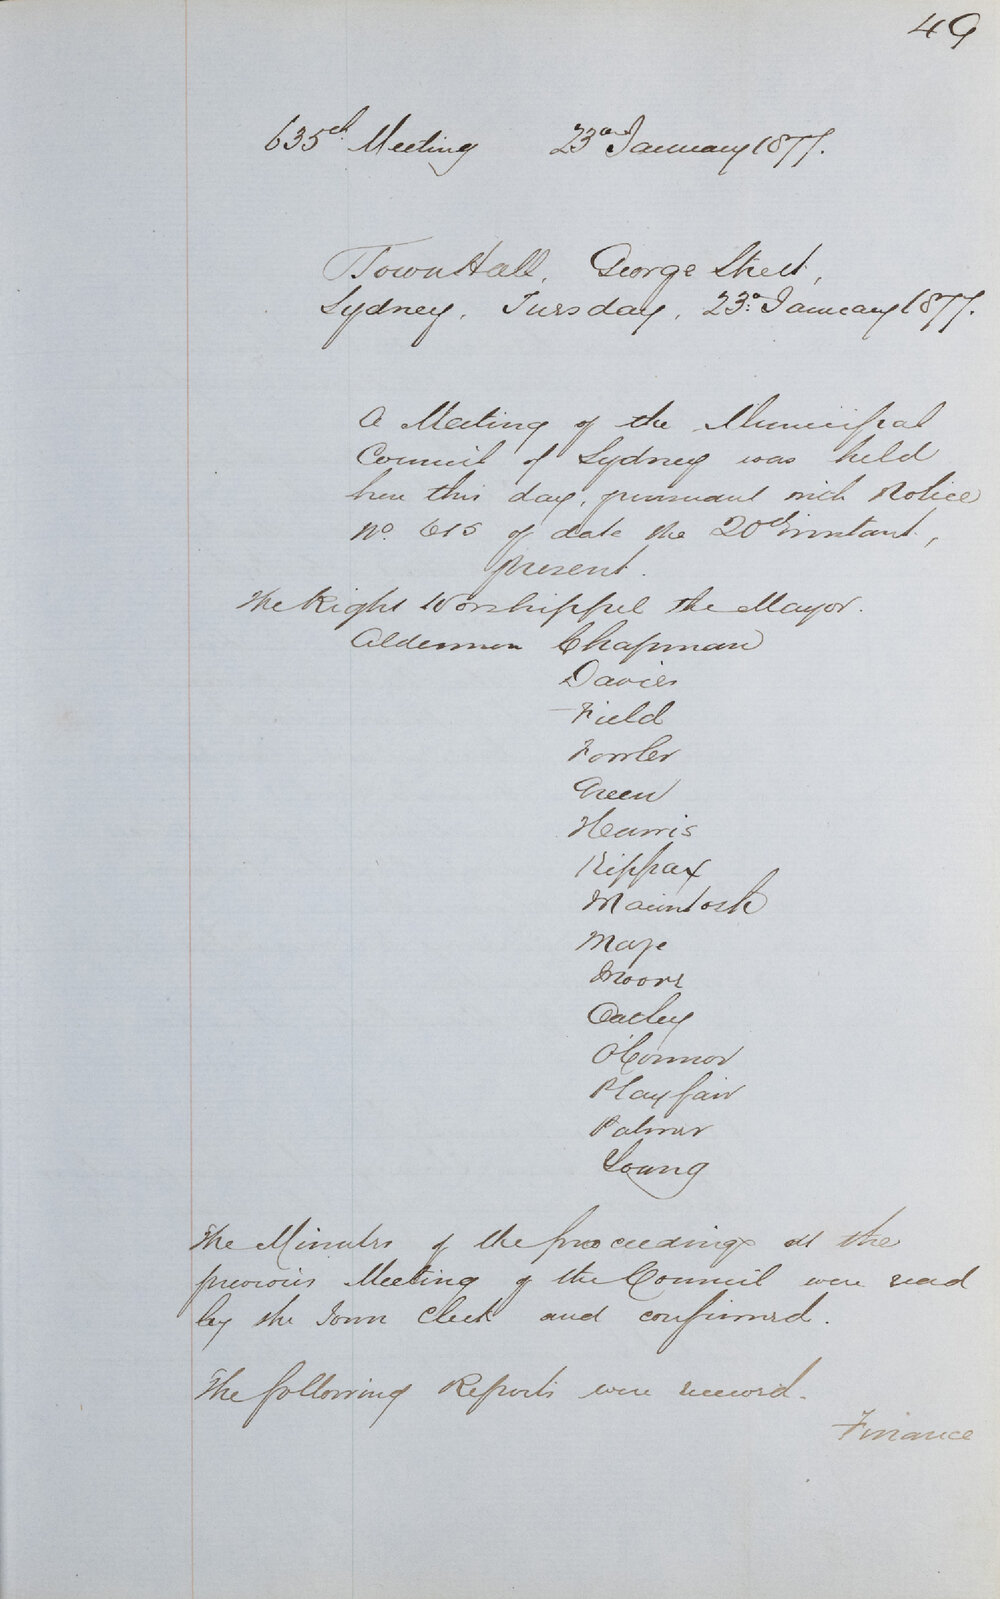 49
635th Meeting 23d January 1877.
Town Hall, George Street,
Sydney, Tuesday, 23d: January 1877.
A Meeting of the Municipal
Council of Sydney was held
here this day, pursuant with Notice
No. 615 of date the 20th instant,
present.
The Right Worshipful the Mayor.
Aldermen Chapman
Davies
Field
Fowler
Green
Harris
Kippax
Macintosh
Maze
Moore
Oatley
O'Connor
Playfair
Palmer
Young
The Minutes of the proceedings at the
previous Meeting of the Council were read
by the Town Clerk and confirmed.
The following Reports were received.
Finance